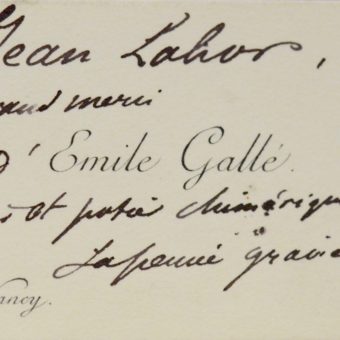 Jean Lahor,
and merci
d' Emile Gallé.
s et potier chimérique
graci
ancy.